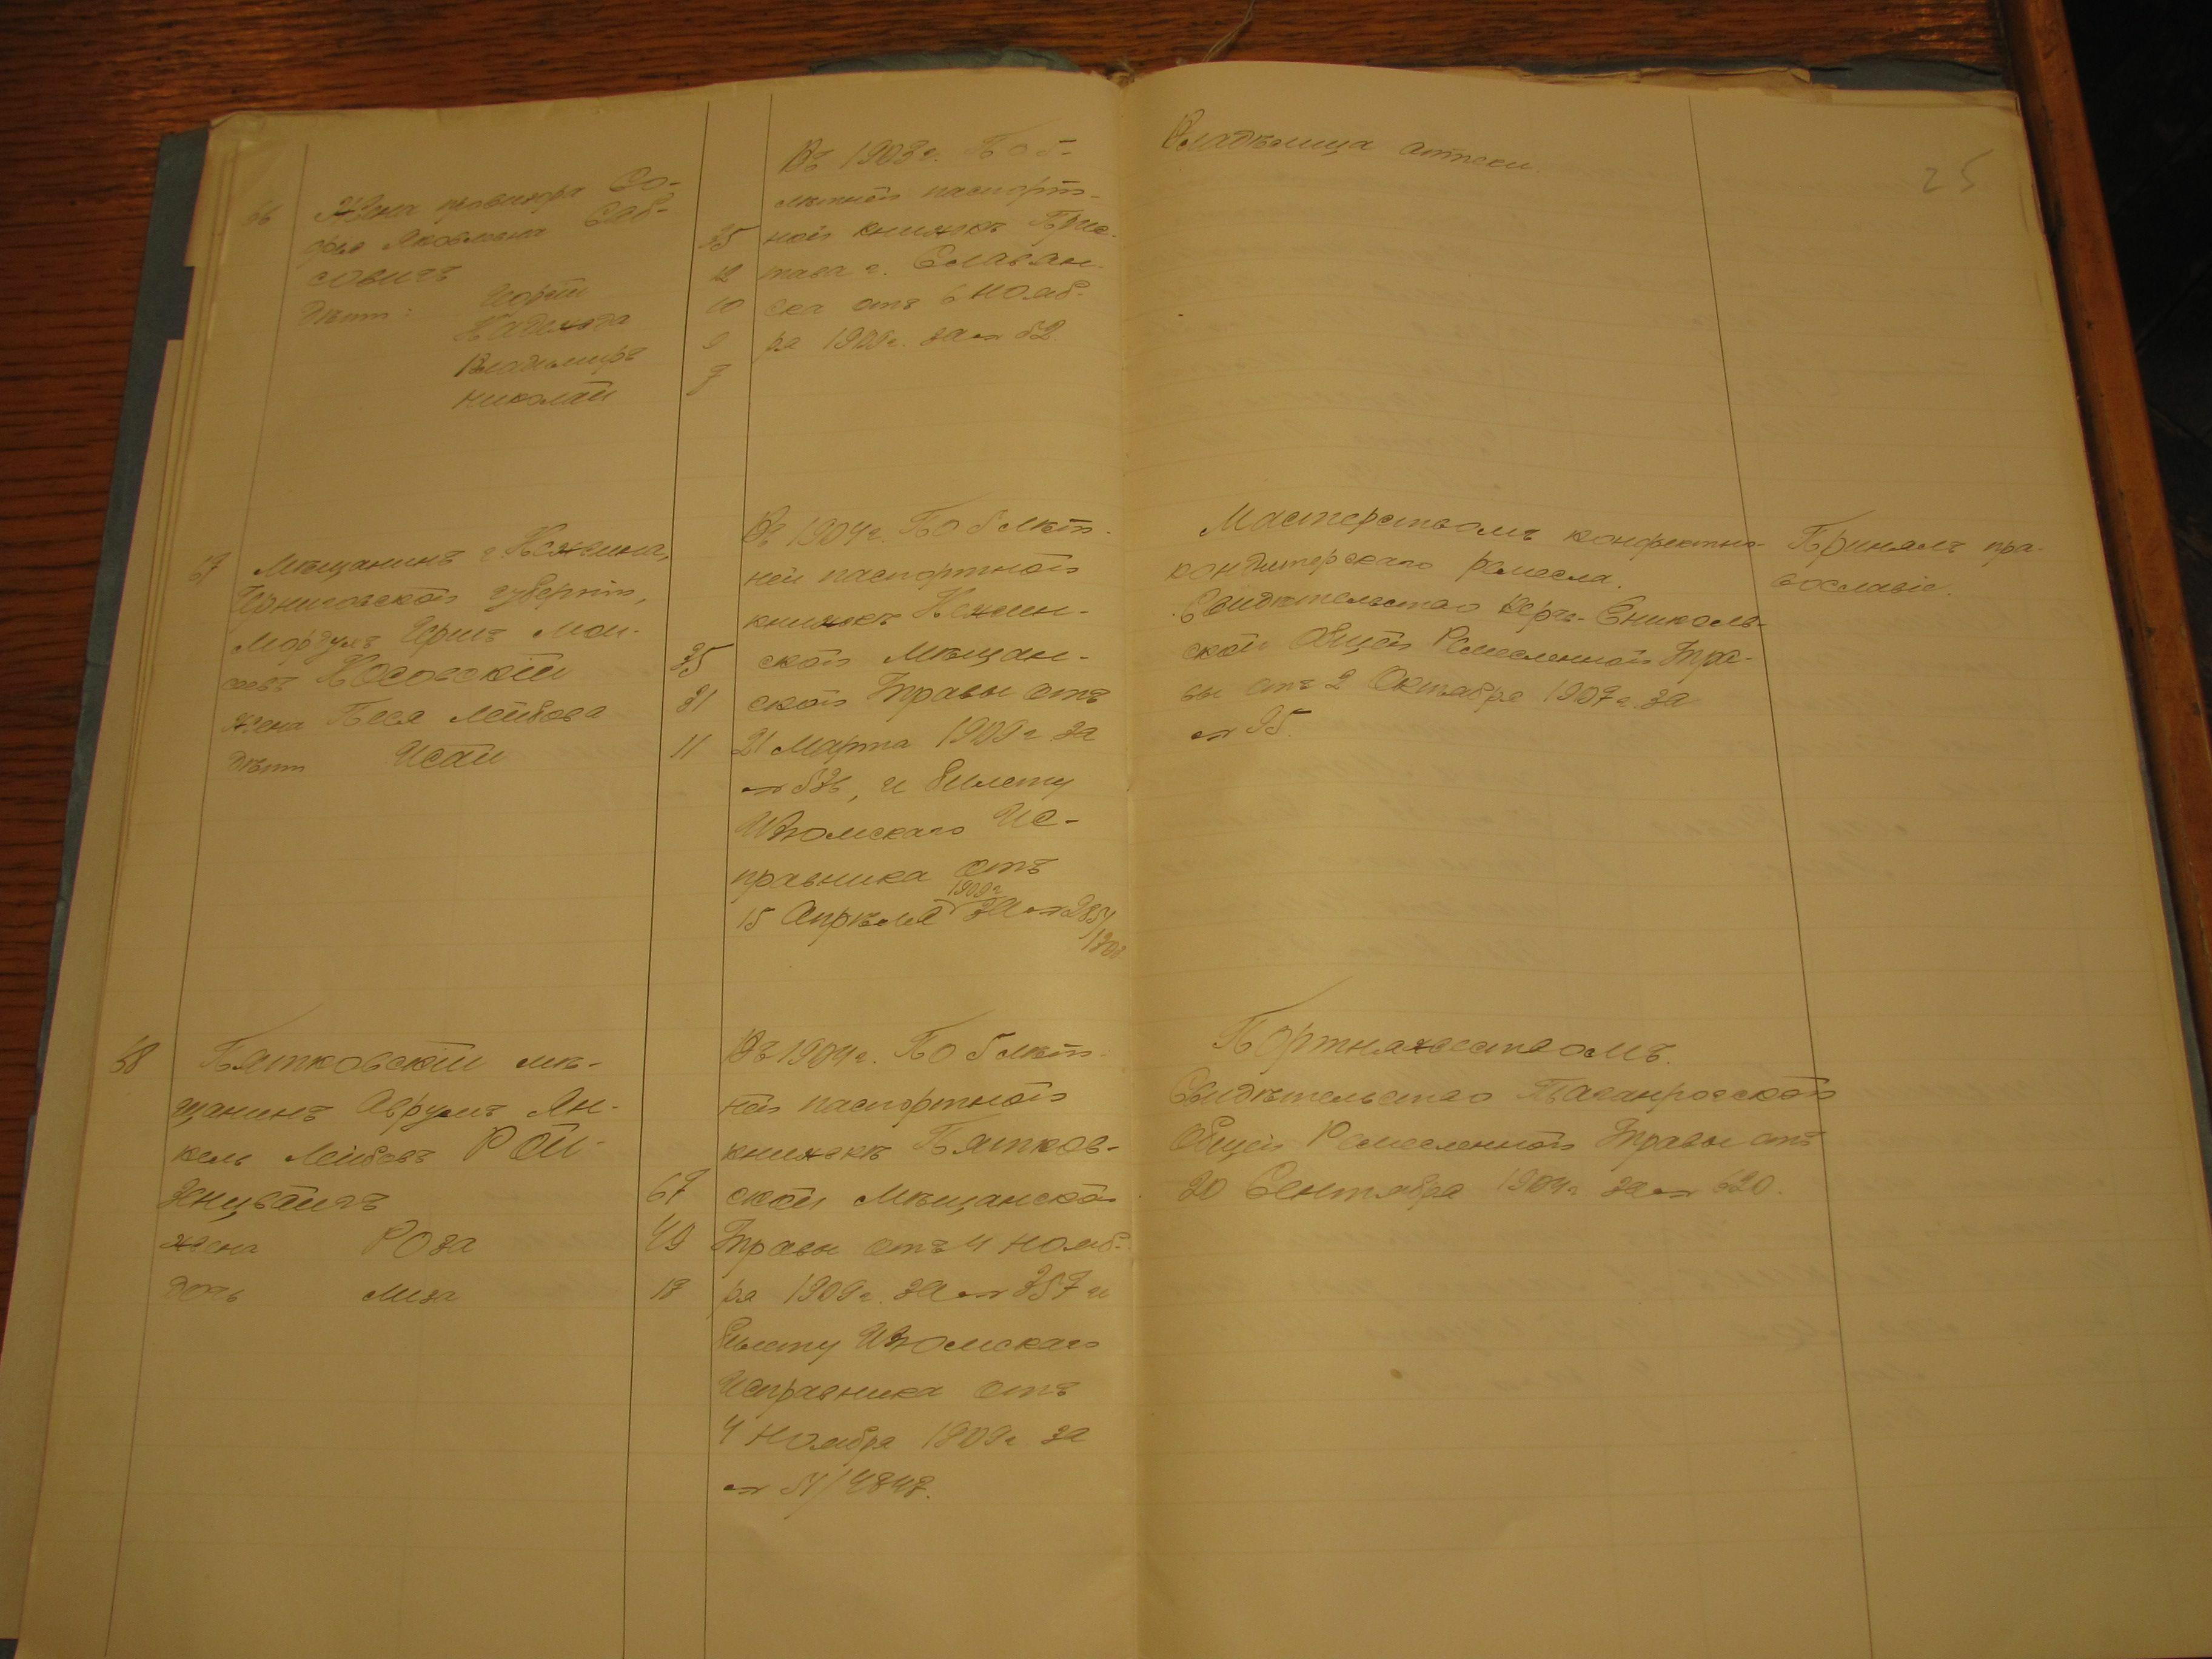 25
66
Жена провизора Со-
фья Яковлевна Саб-
совичъ
Дѣти:
Юрій
Надежда
Владиміръ
Николай
35
12
10
9
7
Въ 1903 г. По 5-
лѣтней паспорт-
ной книжкѣ Прис-
тава г. Славян-
ска отъ 6 Нояб-
ря 1909 г. за № 62
Владѣлица аптеки.
67
Мѣщанинъ г. Нежина,
Черниговской губерніи,
Мордухъ Іерихъ Мои-
сеевъ Носовскій
жена Песя Лейбова
дѣти Исай
35
31
11
Въ 1904 г. По 5 лѣт-
ней паспортной
книжкѣ Нежин-
ской Мѣщан-
ской Управы отъ
21 Марта 1909 г. за
и билету
Изюмскаго Ис-
правника отъ
15 Апрѣля 1909 г. за № 2854/
Мастерствомъ конфектно-
кондитерскаго ремесла.
Свидѣтельство Керчь-Еникаль-
ской Общей Ремесленной Упра-
вы отъ 2 Октября 1907 г. за
№ 95.
Принялъ пра-
вославіе.
68
Пятковскій мѣ-
щанинъ Аврумъ Ян-
кель Лейбовъ Рой-
зенцвайгъ
жена Роза
дочь Лиза
67
49
17
Въ 1904 г. По 5 лѣт-
ней паспортной
книжкѣ Пятков-
ской Мѣщанской
Управы отъ 4 Нояб-
ря 1909 г. за № 357 и
билету Изюмскаго
Исправника отъ
4 Ноября 1909 г. за
№ 51/4847.
Портняжествомъ.
Свидѣтельство Таганрогской
Общей Ремесленной Управы отъ
20 Сентября 1904 г. за № 620.